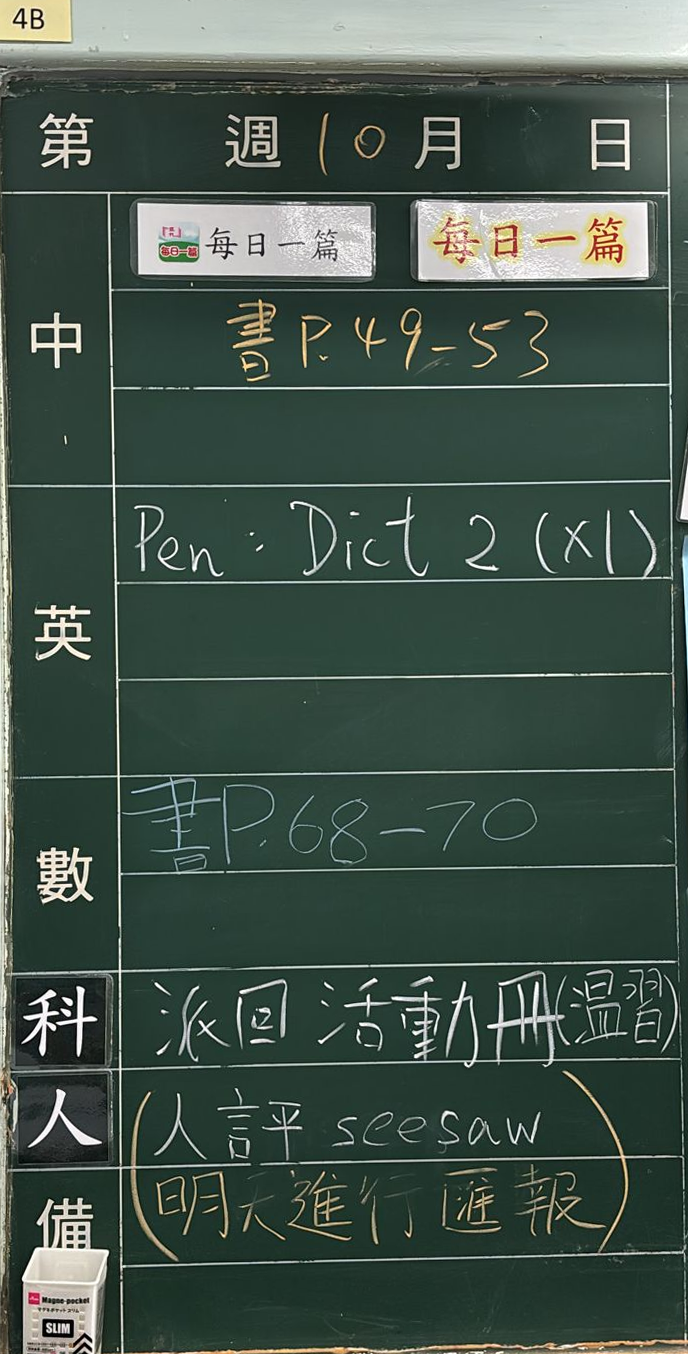 4B
第 週 10 月 日
中
每日一篇 每日一篇 每日一篇
書 P.49-53
英
Pen : Dict 2 (x1)
數
書P.68-70
科 派回 活動冊(溫習)
人 (人評 seesaw
備 明天進行匯報)
Magne-pocket
SLIM